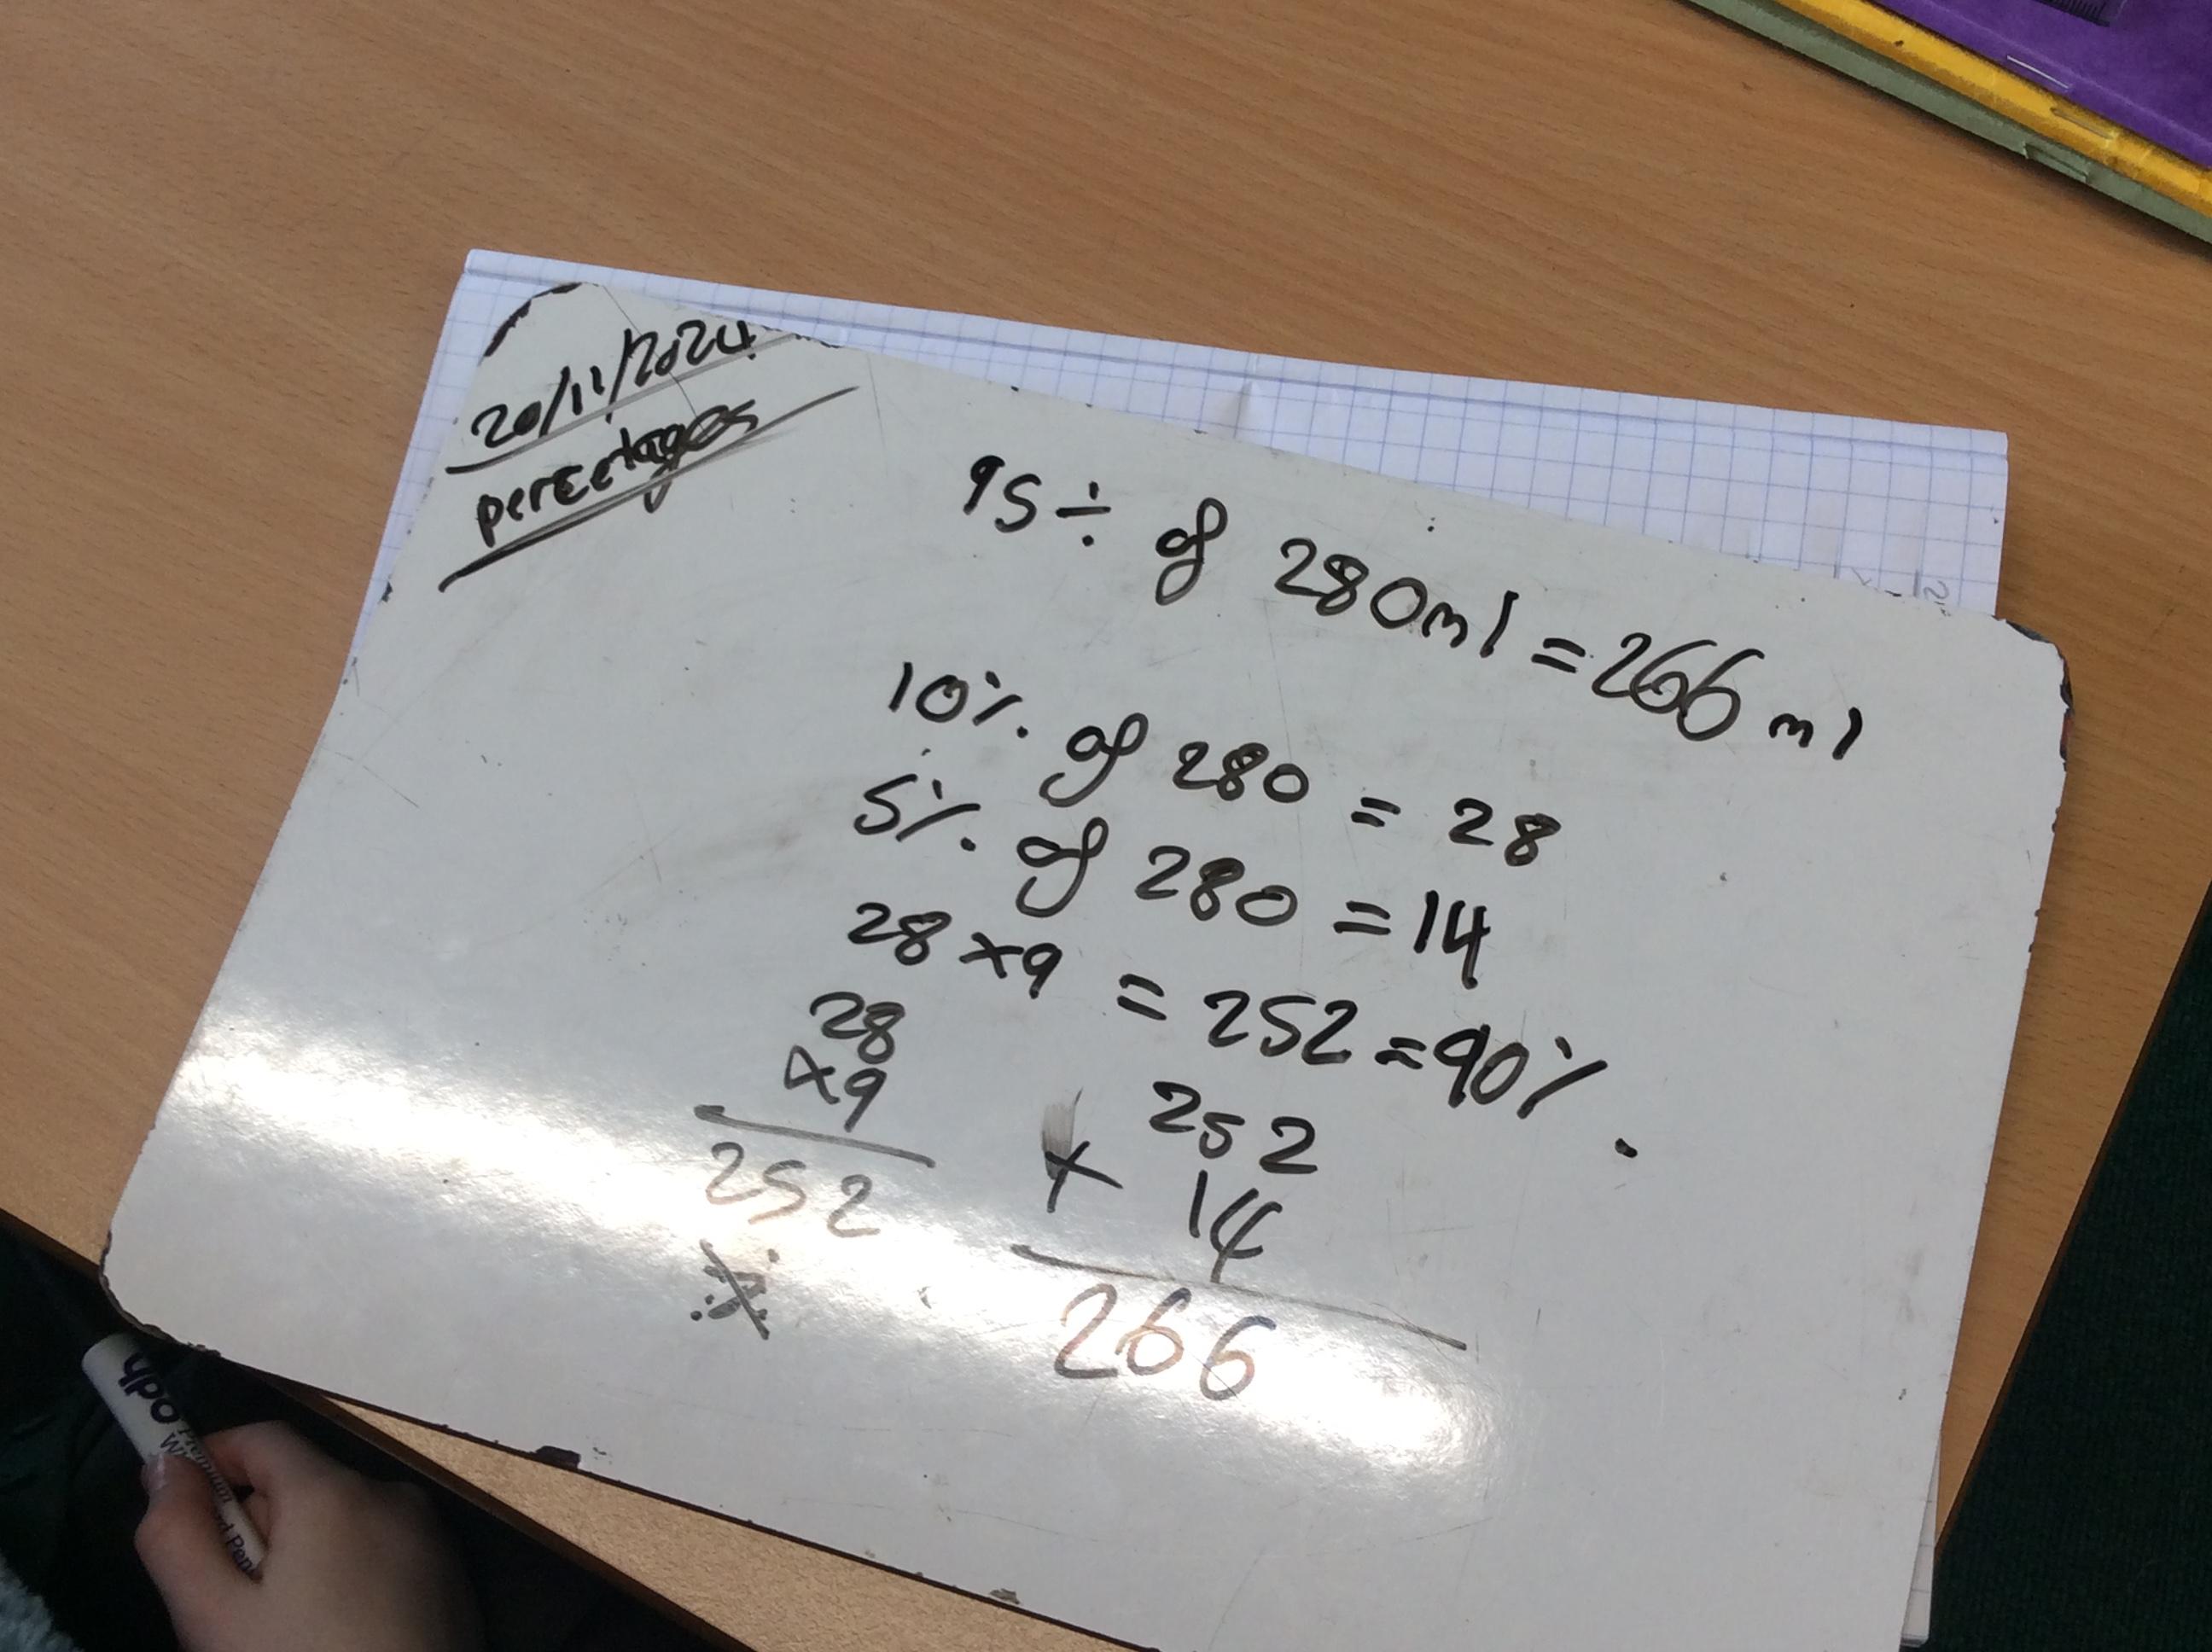 20/11/2024
percetages
95÷ of 280ml = 266ml
10% of 280 = 28
5% of 280 = 14
28 × 9 = 252 = 90%
28
×9
252
252
+ 14
266